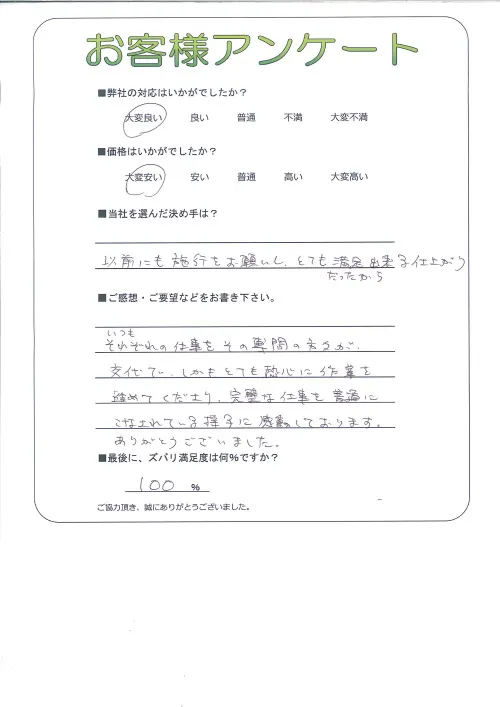 お客様アンケート
■弊社の対応はいかがでしたか？
大変良い 良い 普通 不満 大変不満
■価格はいかがでしたか？
大変安い 安い 普通 高い 大変高い
■当社を選んだ決め手は？
以前にも施行をお願いし、とても満足出来る仕上がり
だったから
■ご感想・ご要望などをお書き下さい。
いつも
それぞれの仕事をその専門の方々が、
交代で、しかもとても熱心に作業を
進めてくださり、完璧な仕事を普通に
こなされている様子に感動しております。
ありがとうございました。
■最後に、ズバリ満足度は何%ですか？
100 %
ご協力頂き、誠にありがとうございました。